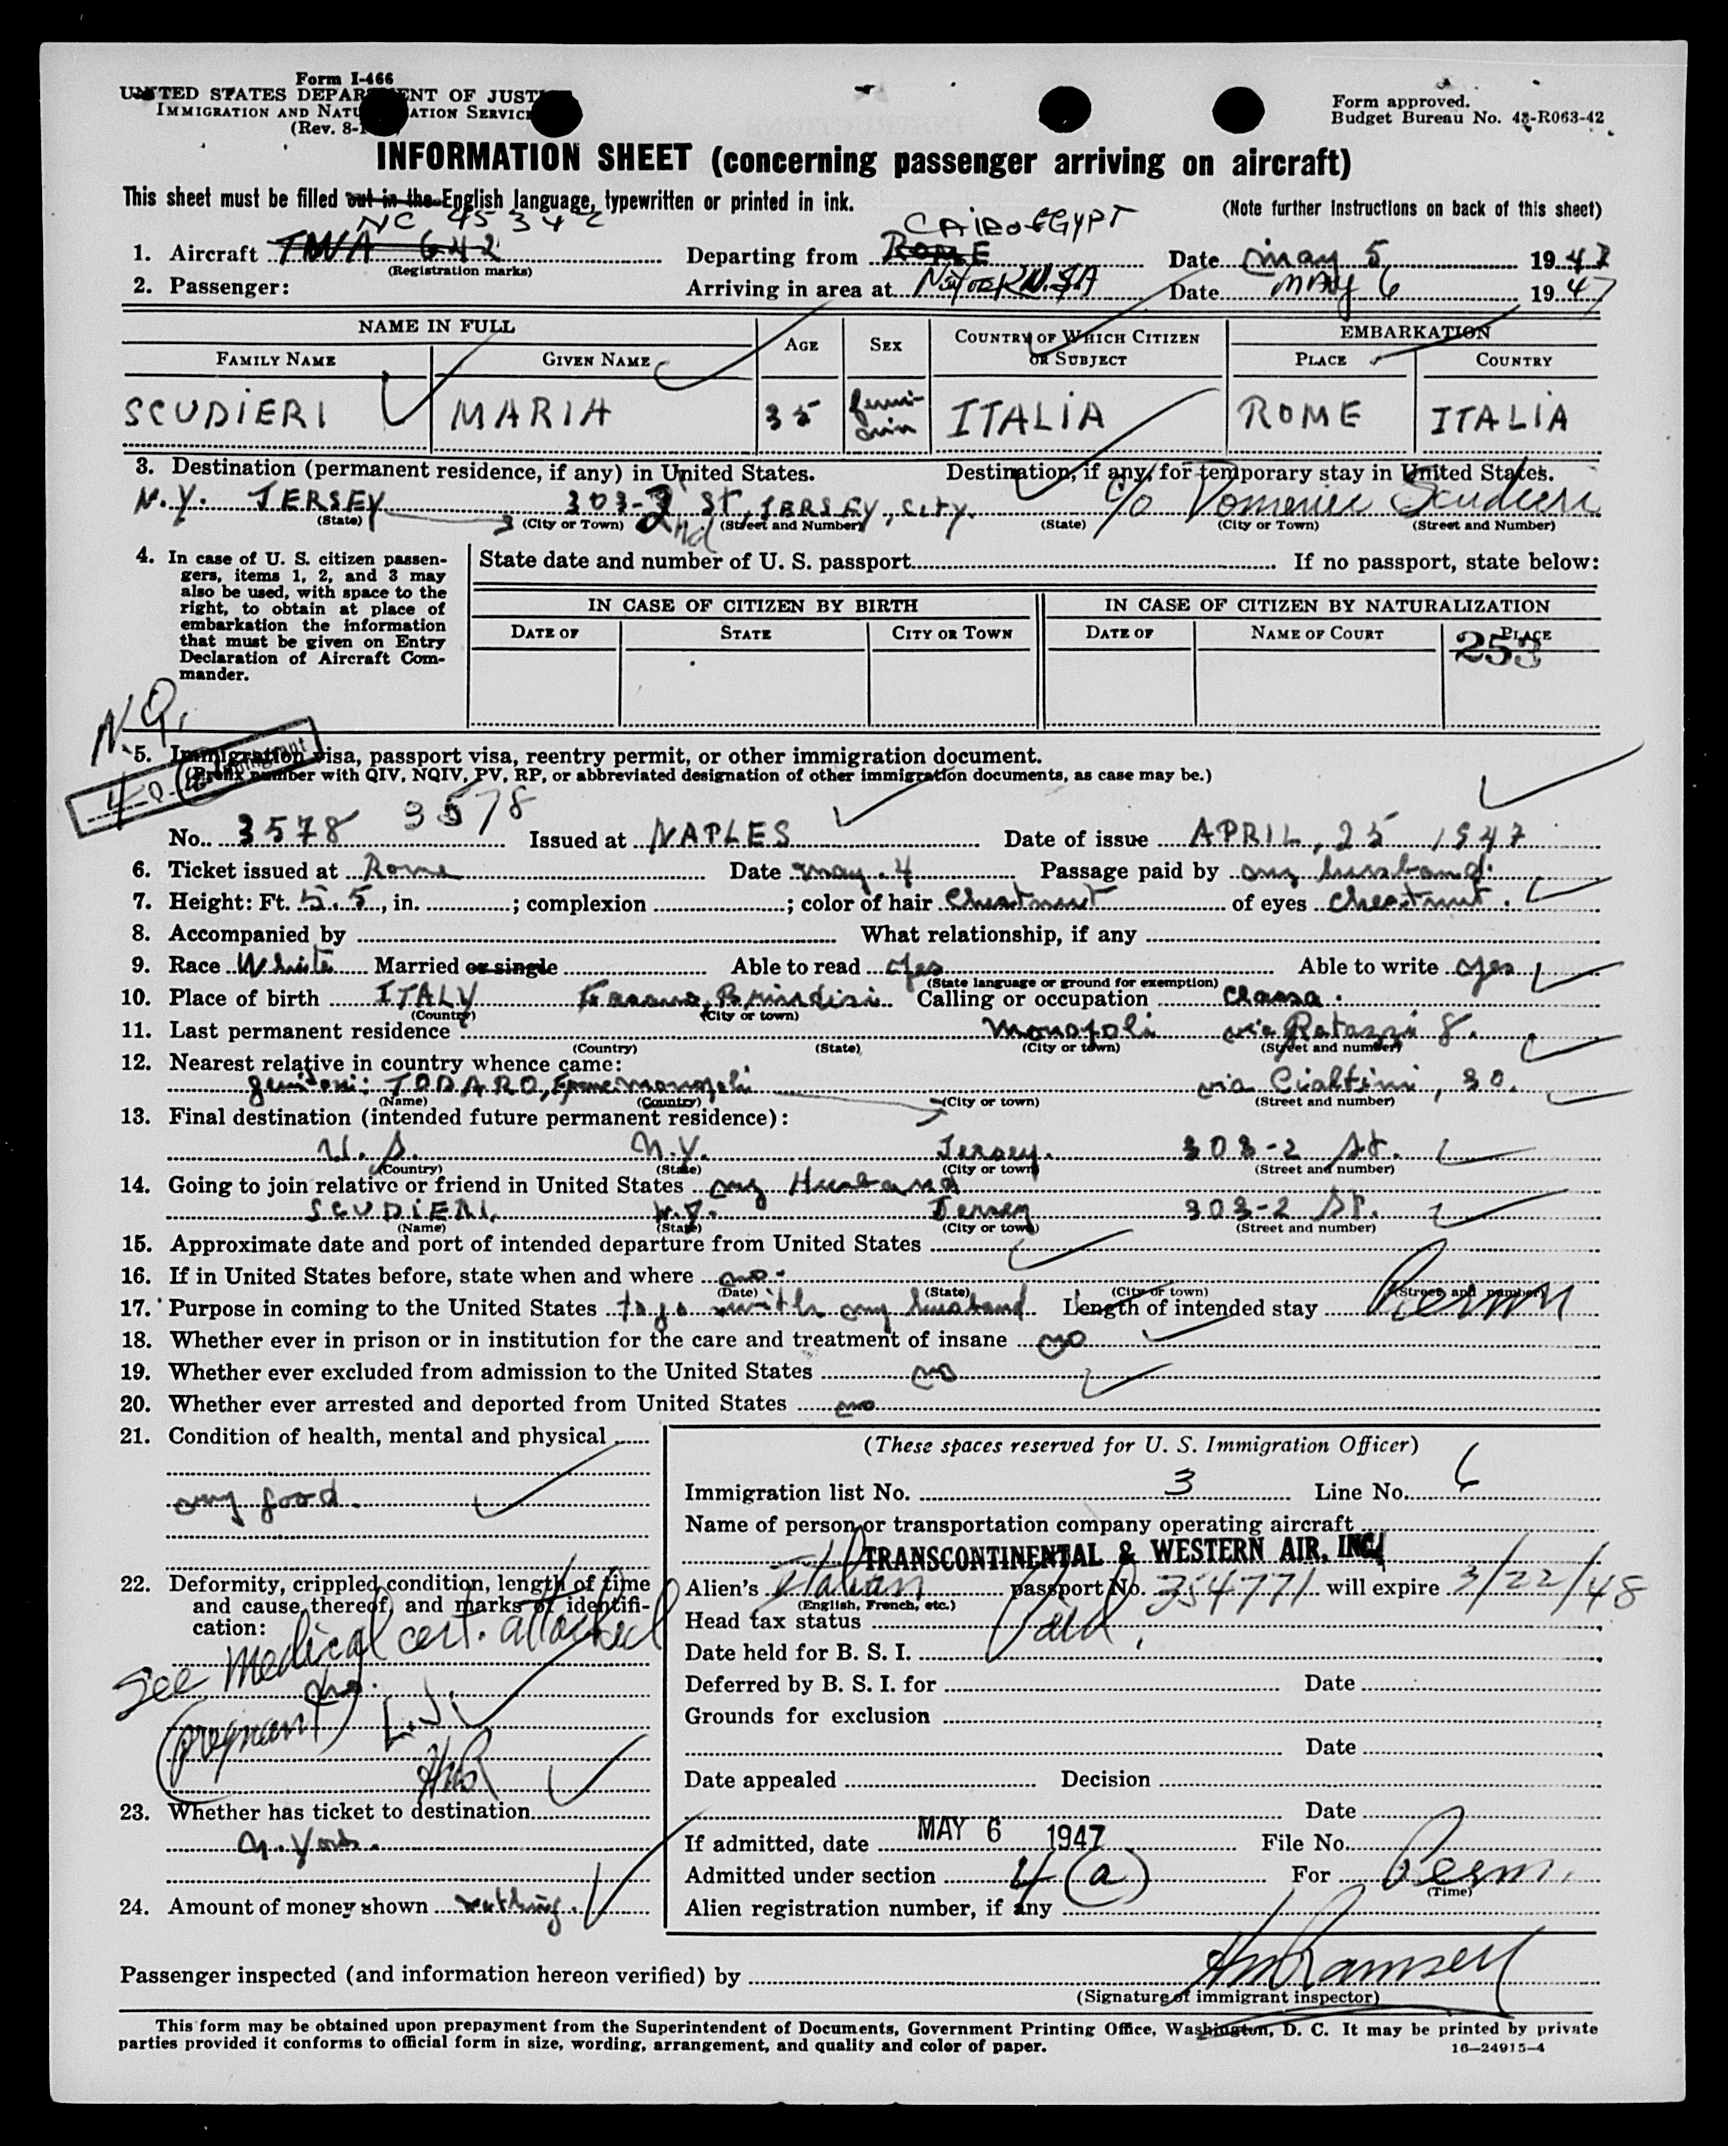 Form I-466
UNITED STATES DEPARTMENT OF JUSTICE
IMMIGRATION AND NATURALIZATION SERVICE
(Rev. 8-
Form approved.
Budget Bureau No. 43-R063-42
INFORMATION SHEET (concerning passenger arriving on aircraft)
This sheet must be filled out in the English language, typewritten or printed in ink.
(Note further instructions on back of this sheet)
NC 45342 CAIRO EGYPT
1. Aircraft TWA 642 Departing from ROME Date may 5 1947
(Registration marks)
2. Passenger: Arriving in area at N.YORK U.S.A Date MAY 6 1947
NAME IN FULL AGE SEX COUNTRY OF WHICH CITIZEN OR SUBJECT EMBARKATION
FAMILY NAME GIVEN NAME PLACE COUNTRY
SCUDIERI MARIA 35 femi- ITALIA ROME ITALIA
nin
3. Destination (permanent residence, if any) in United States. Destination, if any, for temporary stay in United States.
N.Y. JERSEY 303-2 St, JERSEY, City. c/o Scudieri
(State) (City or Town) 2nd (Street and Number) (State) (City or Town) (Street and Number)
4. In case of U. S. citizen passen-
gers, items 1, 2, and 3 may
also be used, with space to the
right, to obtain at place of
embarkation the information
that must be given on Entry
Declaration of Aircraft Com-
mander.
State date and number of U. S. passport If no passport, state below:
IN CASE OF CITIZEN BY BIRTH IN CASE OF CITIZEN BY NATURALIZATION
DATE OF STATE CITY OR TOWN DATE OF NAME OF COURT PLACE
253
N.Q.
5. Immigration visa, passport visa, reentry permit, or other immigration document.
(Prefix number with QIV, NQIV, PV, RP, or abbreviated designation of other immigration documents, as case may be.)
4
3578
No. 3578 Issued at NAPLES Date of issue APRIL, 25 1947
6. Ticket issued at Rome Date may. 4 Passage paid by my husband.
7. Height: Ft. 5.5, in. ; complexion ; color of hair Chestnut of eyes chestnut.
8. Accompanied by What relationship, if any
9. Race White Married or single Able to read yes Able to write yes
(State language or ground for exemption)
10. Place of birth ITALY Fasano, Brindisi Calling or occupation
(Country) (City or town)
11. Last permanent residence Monopoli via Ratazzi 8.
(Country) (State) (City or town) (Street and number)
12. Nearest relative in country whence came:
genitori: TODARO, monopoli via Cialtini, 30.
(Name) (Country) (City or town) (Street and number)
13. Final destination (intended future permanent residence):
U. S. N.Y. Jersey. 303-2 St.
(Country) (State) (City or town) (Street and number)
14. Going to join relative or friend in United States my Husband
SCUDIERI, N.Y. Jersey 303-2 St.
(Name) (State) (City or town) (Street and number)
15. Approximate date and port of intended departure from United States
16. If in United States before, state when and where no.
(Date) (State) (City or town) (Street and number)
17. Purpose in coming to the United States to go with my husband Length of intended stay Perm
18. Whether ever in prison or in institution for the care and treatment of insane no
19. Whether ever excluded from admission to the United States no
20. Whether ever arrested and deported from United States no
21. Condition of health, mental and physical
good.
22. Deformity, crippled condition, length of time
and cause thereof, and marks of identifi-
cation:
See Medical cert. attached
no.
(pregnant) L.J.
HMR
23. Whether has ticket to destination
N. York.
24. Amount of money shown nothing.
(These spaces reserved for U. S. Immigration Officer)
Immigration list No. 3 Line No. 6
Name of person or transportation company operating aircraft
TRANSCONTINENTAL & WESTERN AIR, INC.
Alien's Italian passport No. 354771 will expire 3/22/48
(English, French, etc.)
Head tax status Paid.
Date held for B. S. I.
Deferred by B. S. I. for Date
Grounds for exclusion
Date
Date appealed Decision
Date
If admitted, date MAY 6 1947 File No.
Admitted under section 4 (a) For Perm.
(Time)
Alien registration number, if any
Passenger inspected (and information hereon verified) by HM Ramsey
(Signature of immigrant inspector)
This form may be obtained upon prepayment from the Superintendent of Documents, Government Printing Office, Washington, D. C. It may be printed by private
parties provided it conforms to official form in size, wording, arrangement, and quality and color of paper. 16—24915-4